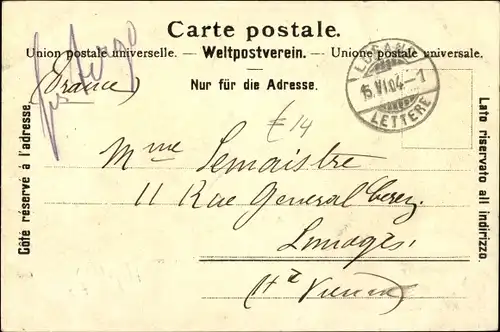 Carte postale.
Union postale universelle. — Weltpostverein. — Unione postale universale.
Nur für die Adresse.
Côté réservé à l'adresse.
Lato riservato all indirizzo.
(France)
LUGANO
15.VI.04.-1
LETTERE
£14
Mme Lemaistre
11 Rue General Cerez.
Limoges.
(Hte Vienne)